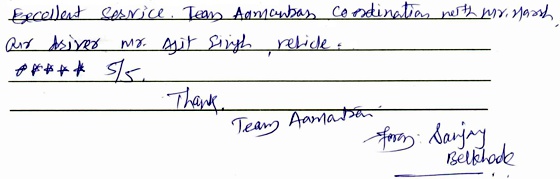 Excellent Service. Team Aamantran Coordination with Mr. Harsh,
our driver Mr. Ajit Singh, vehicle.
***** 5/5.
Thank.
Team Aamantran.
from. Sanjay
Belkhode